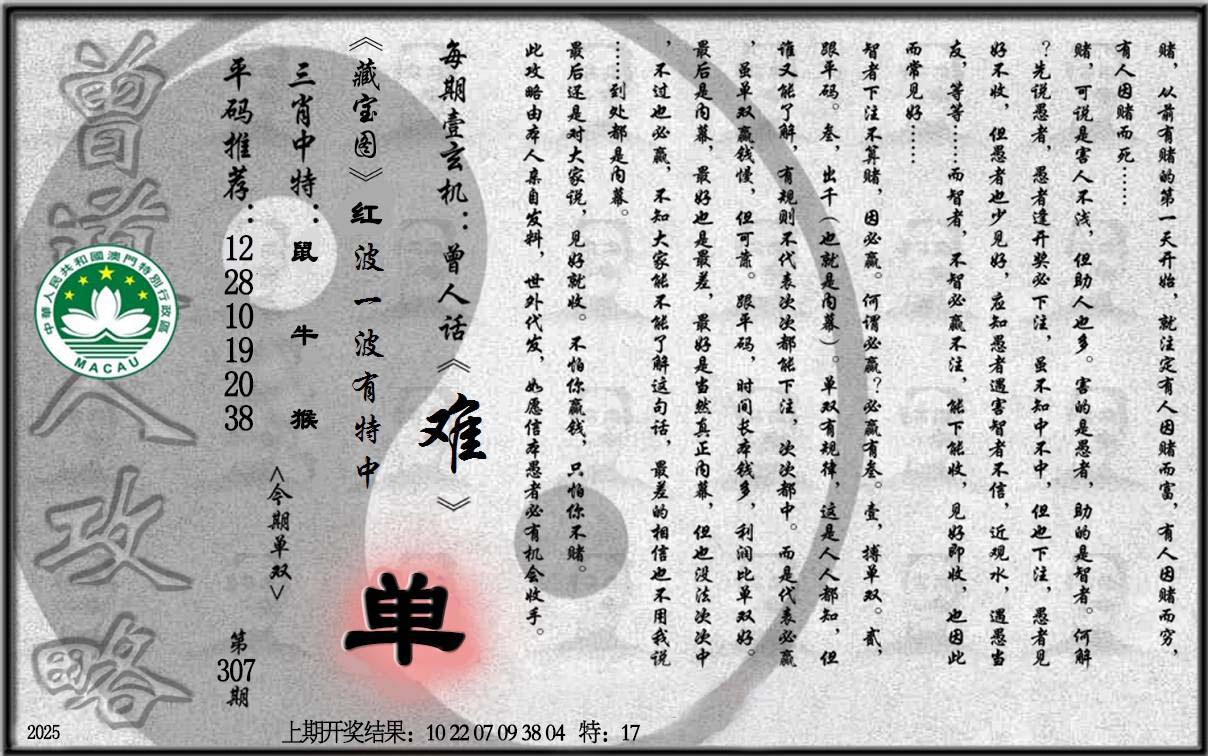 赌，从前有赌的第一天开始，就注定有人因赌而富，有人因赌而穷，
有人因赌而死……
赌，可说是害人不浅，但助人也多。害的是愚者，助的是智者。何解
？先说愚者，愚者逢开奖必下注，虽不知中不中，但也下注，愚者见
好不收，但愚者也少见好，应知愚者遇害智者不信，近观水，遇愚当
友，等等……而智者，不智必赢不注，能下能收，见好即收，也因此
而常见好……
智者下注不算赌，因必赢。何谓必赢？必赢有叁。壹，搏单双。贰，
跟平码。叁，出千（也就是内幕）。单双有规律，这是人人都知，但
谁又能了解，有规则不代表次次都能下注，次次都中。而是代表必赢
，虽单双赢钱慢，但可靠。跟平码，时间长本钱多，利润比单双好。
最后是内幕，最好也是最差，最好是当然真正内幕，但也没法次次中
，不过也必赢，不知大家能不能了解这句话，最差的相信也不用我说
……到处都是内幕。
最后还是对大家说，见好就收。不怕你赢钱，只怕你不赌。
此攻略由本人亲自发料，世外代发，如愿信本愚者必有机会收手。
每期壹玄机：曾人话《难》
《藏宝图》红波一波有特中
单
三肖中特：鼠 牛 猴
<今期单双>
平码推荐：12 28 10 19 20 38
第307期
曾道人攻略
中華人民共和國澳門特別行政區
MACAU
2025
上期开奖结果：10 22 07 09 38 04 特：17